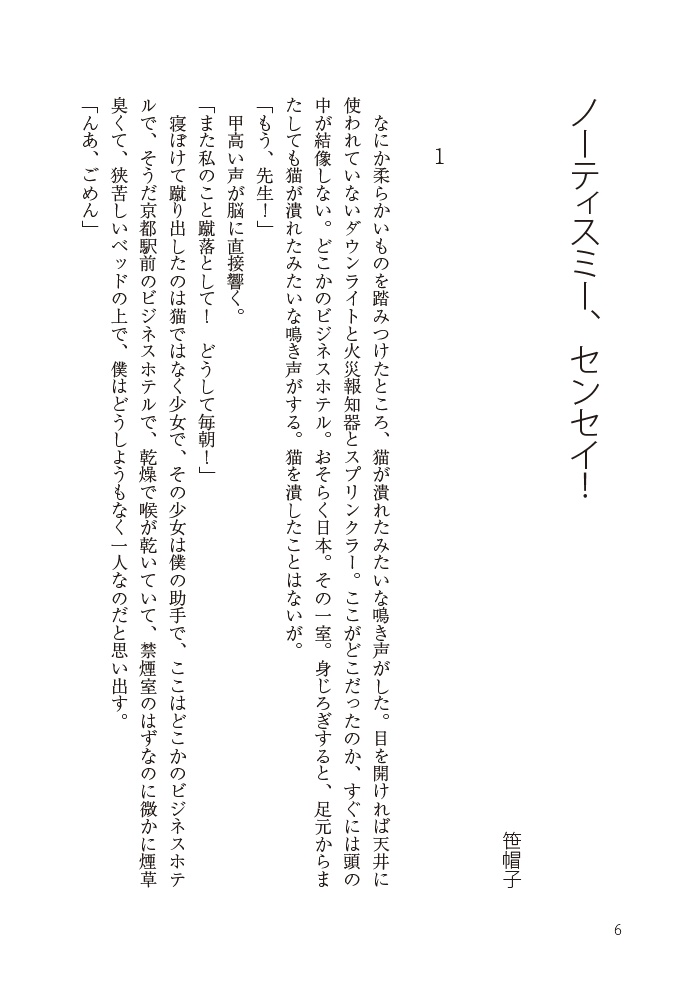 ノーティスミー、センセイ！
笹帽子
1
　なにか柔らかいものを踏みつけたところ、猫が潰れたみたいな鳴き声がした。目を開ければ天井に
使われていないダウンライトと火災報知器とスプリンクラー。ここがどこだったのか、すぐには頭の
中が結像しない。どこかのビジネスホテル。おそらく日本。その一室。身じろぎすると、足元からま
たしても猫が潰れたみたいな鳴き声がする。猫を潰したことはないが。
「もう、先生！」
　甲高い声が脳に直接響く。
「また私のこと蹴落として！　どうして毎朝！」
　寝ぼけて蹴り出したのは猫ではなく少女で、その少女は僕の助手で、ここはどこかのビジネスホテ
ルで、そうだ京都駅前のビジネスホテルで、乾燥で喉が乾いていて、禁煙室のはずなのに微かに煙草
臭くて、狭苦しいベッドの上で、僕はどうしようもなく一人なのだと思い出す。
「んあ、ごめん」
6